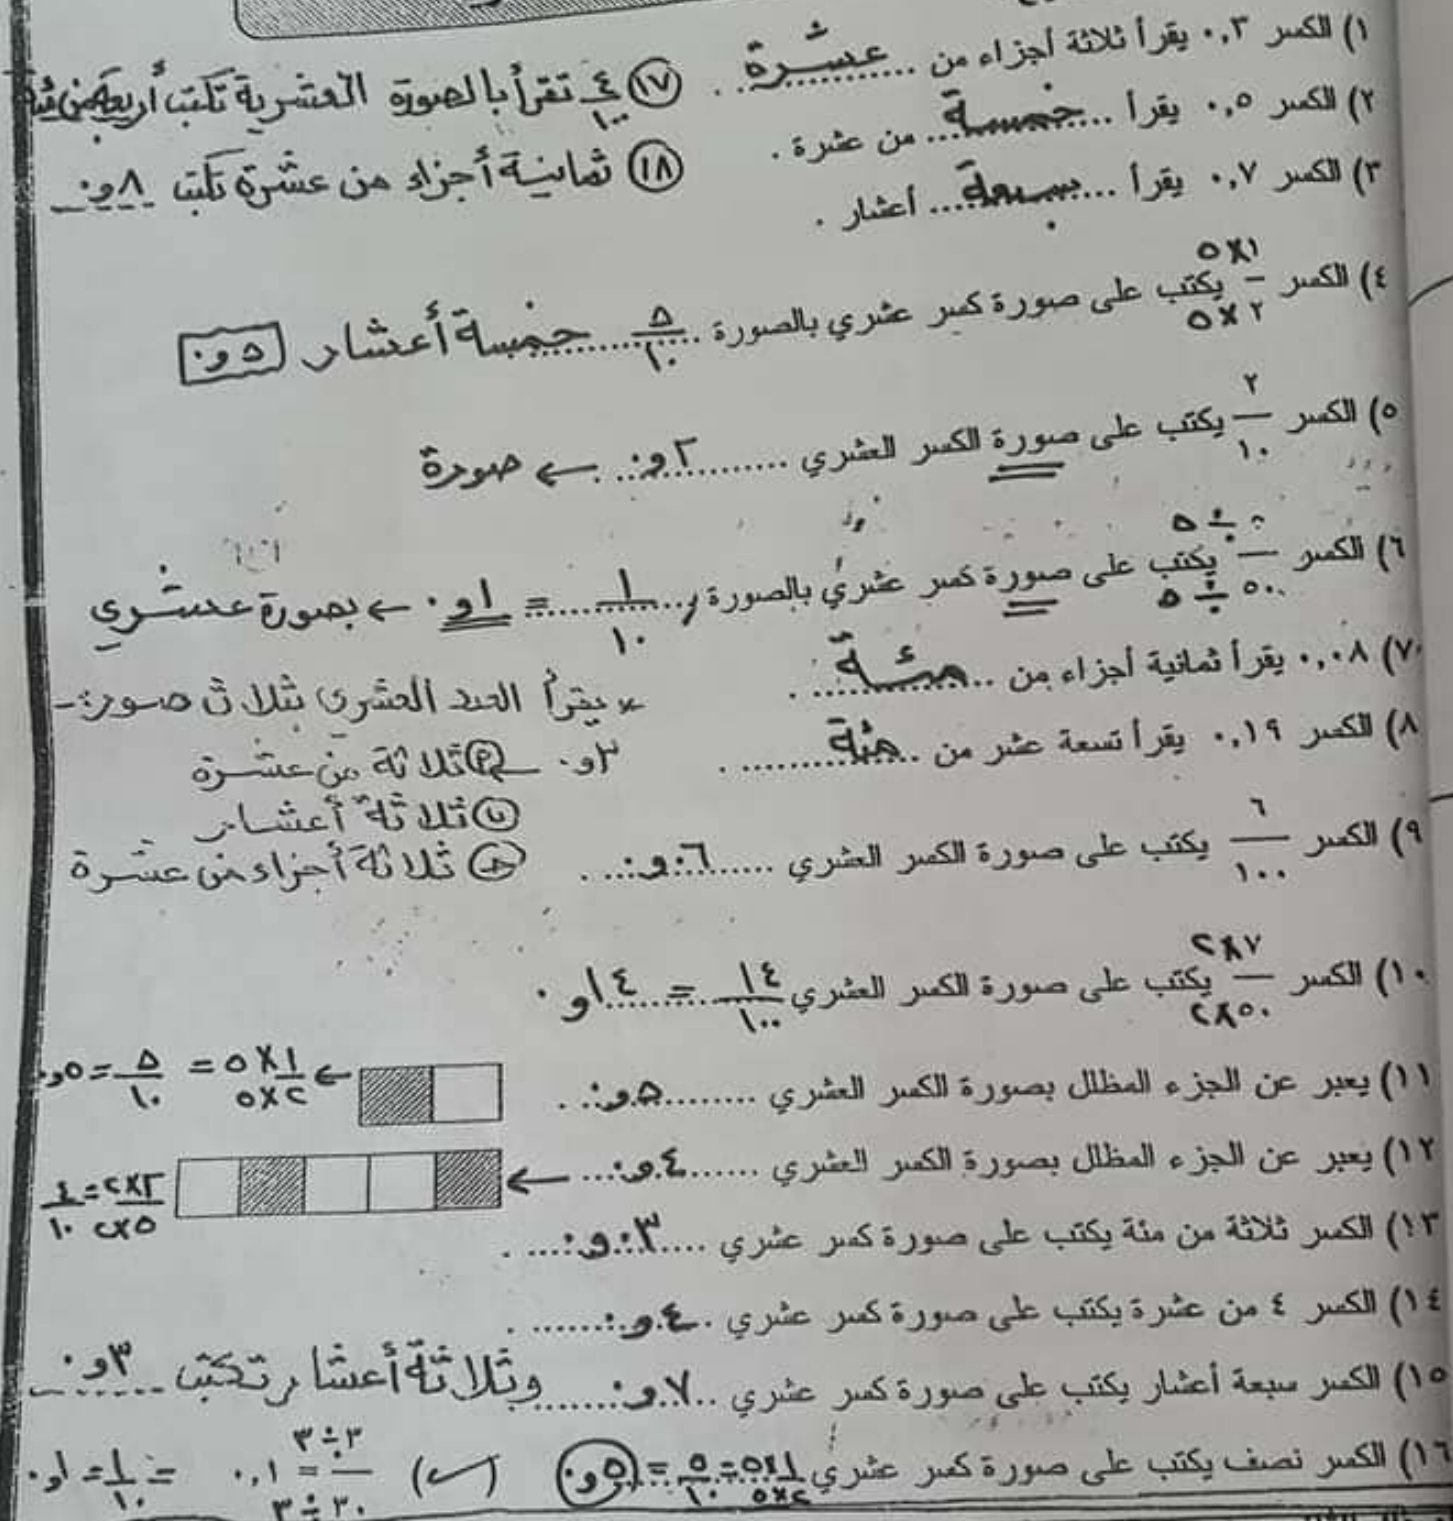 ١) الكسر ٠,٣ يقرأ ثلاثة أجزاء من عشرة .
٢) الكسر ٠,٥ يقرأ خمسة من عشرة .
٣) الكسر ٠,٧ يقرأ سبعة أعشار .
١٧) ٤/١٠٠ تقرأ بالصورة العشرية تكتب أربعة من مئة
١٨) ثمانية أجزاء من عشرة تكتب ٠و٨
٤) الكسر ١×٥/٢×٥ يكتب على صورة كسر عشري بالصورة ٥/١٠ خمسة أعشار ٠و٥
٥) الكسر ٢/١٠ يكتب على صورة الكسر العشري ٠و٢ ← صورة
٦) الكسر ٥÷٥/٥٠÷٥ يكتب على صورة كسر عشري بالصورة ١/١٠ = ٠و١ ← بصورة عشري
٧) ٠,٠٨ يقرأ ثمانية أجزاء من مئة .
٨) الكسر ٠,١٩ يقرأ تسعة عشر من مئة .
* يقرأ العدد العشري بثلاث صور:-
٠و٣ ← أ ثلاثة من عشرة
ب ثلاثة أعشار
ج ثلاثة أجزاء من عشرة
٩) الكسر ٦/١٠٠ يكتب على صورة الكسر العشري ٠و٠٦ .
١٠) الكسر ٧×٢/٥٠×٢ يكتب على صورة الكسر العشري ١٤/١٠٠ = ٠و١٤
١١) يعبر عن الجزء المظلل بصورة الكسر العشري ٠و٥ . ← ١×٥/٢×٥ = ٥/١٠ = ٠و٥
١٢) يعبر عن الجزء المظلل بصورة الكسر العشري ٠و٤ ← ٢×٢/٥×٢ = ٤/١٠
١٣) الكسر ثلاثة من مئة يكتب على صورة كسر عشري ٠و٠٣ .
١٤) الكسر ٤ من عشرة يكتب على صورة كسر عشري ٠و٤ .
١٥) الكسر سبعة أعشار يكتب على صورة كسر عشري ٠و٧ وثلاثة أعشار تكتب ٠و٣
١٦) الكسر نصف يكتب على صورة كسر عشري ١×٥/٢×٥ = ٥/١٠ = ٠و٥ (✓) ٣÷٣/٣٠÷٣ = ٠,١ = ١/١٠ = ٠و١